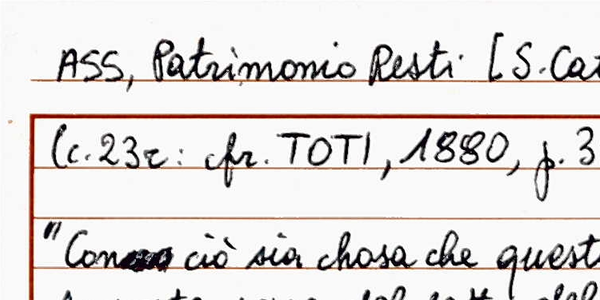 ASS, Patrimonio Resti [S. Cat
(c. 23r: cfr. TOTI, 1880, p. 3
"Con ciò sia chosa che quest